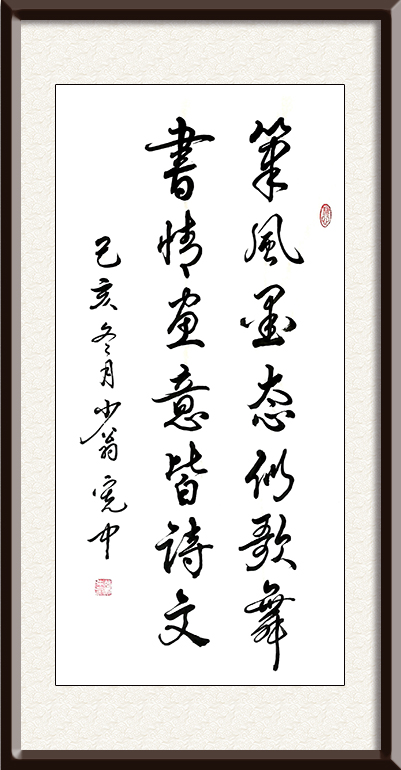 筆風墨态似歌舞
書情画意皆詩文
己亥冬月少翁宪中